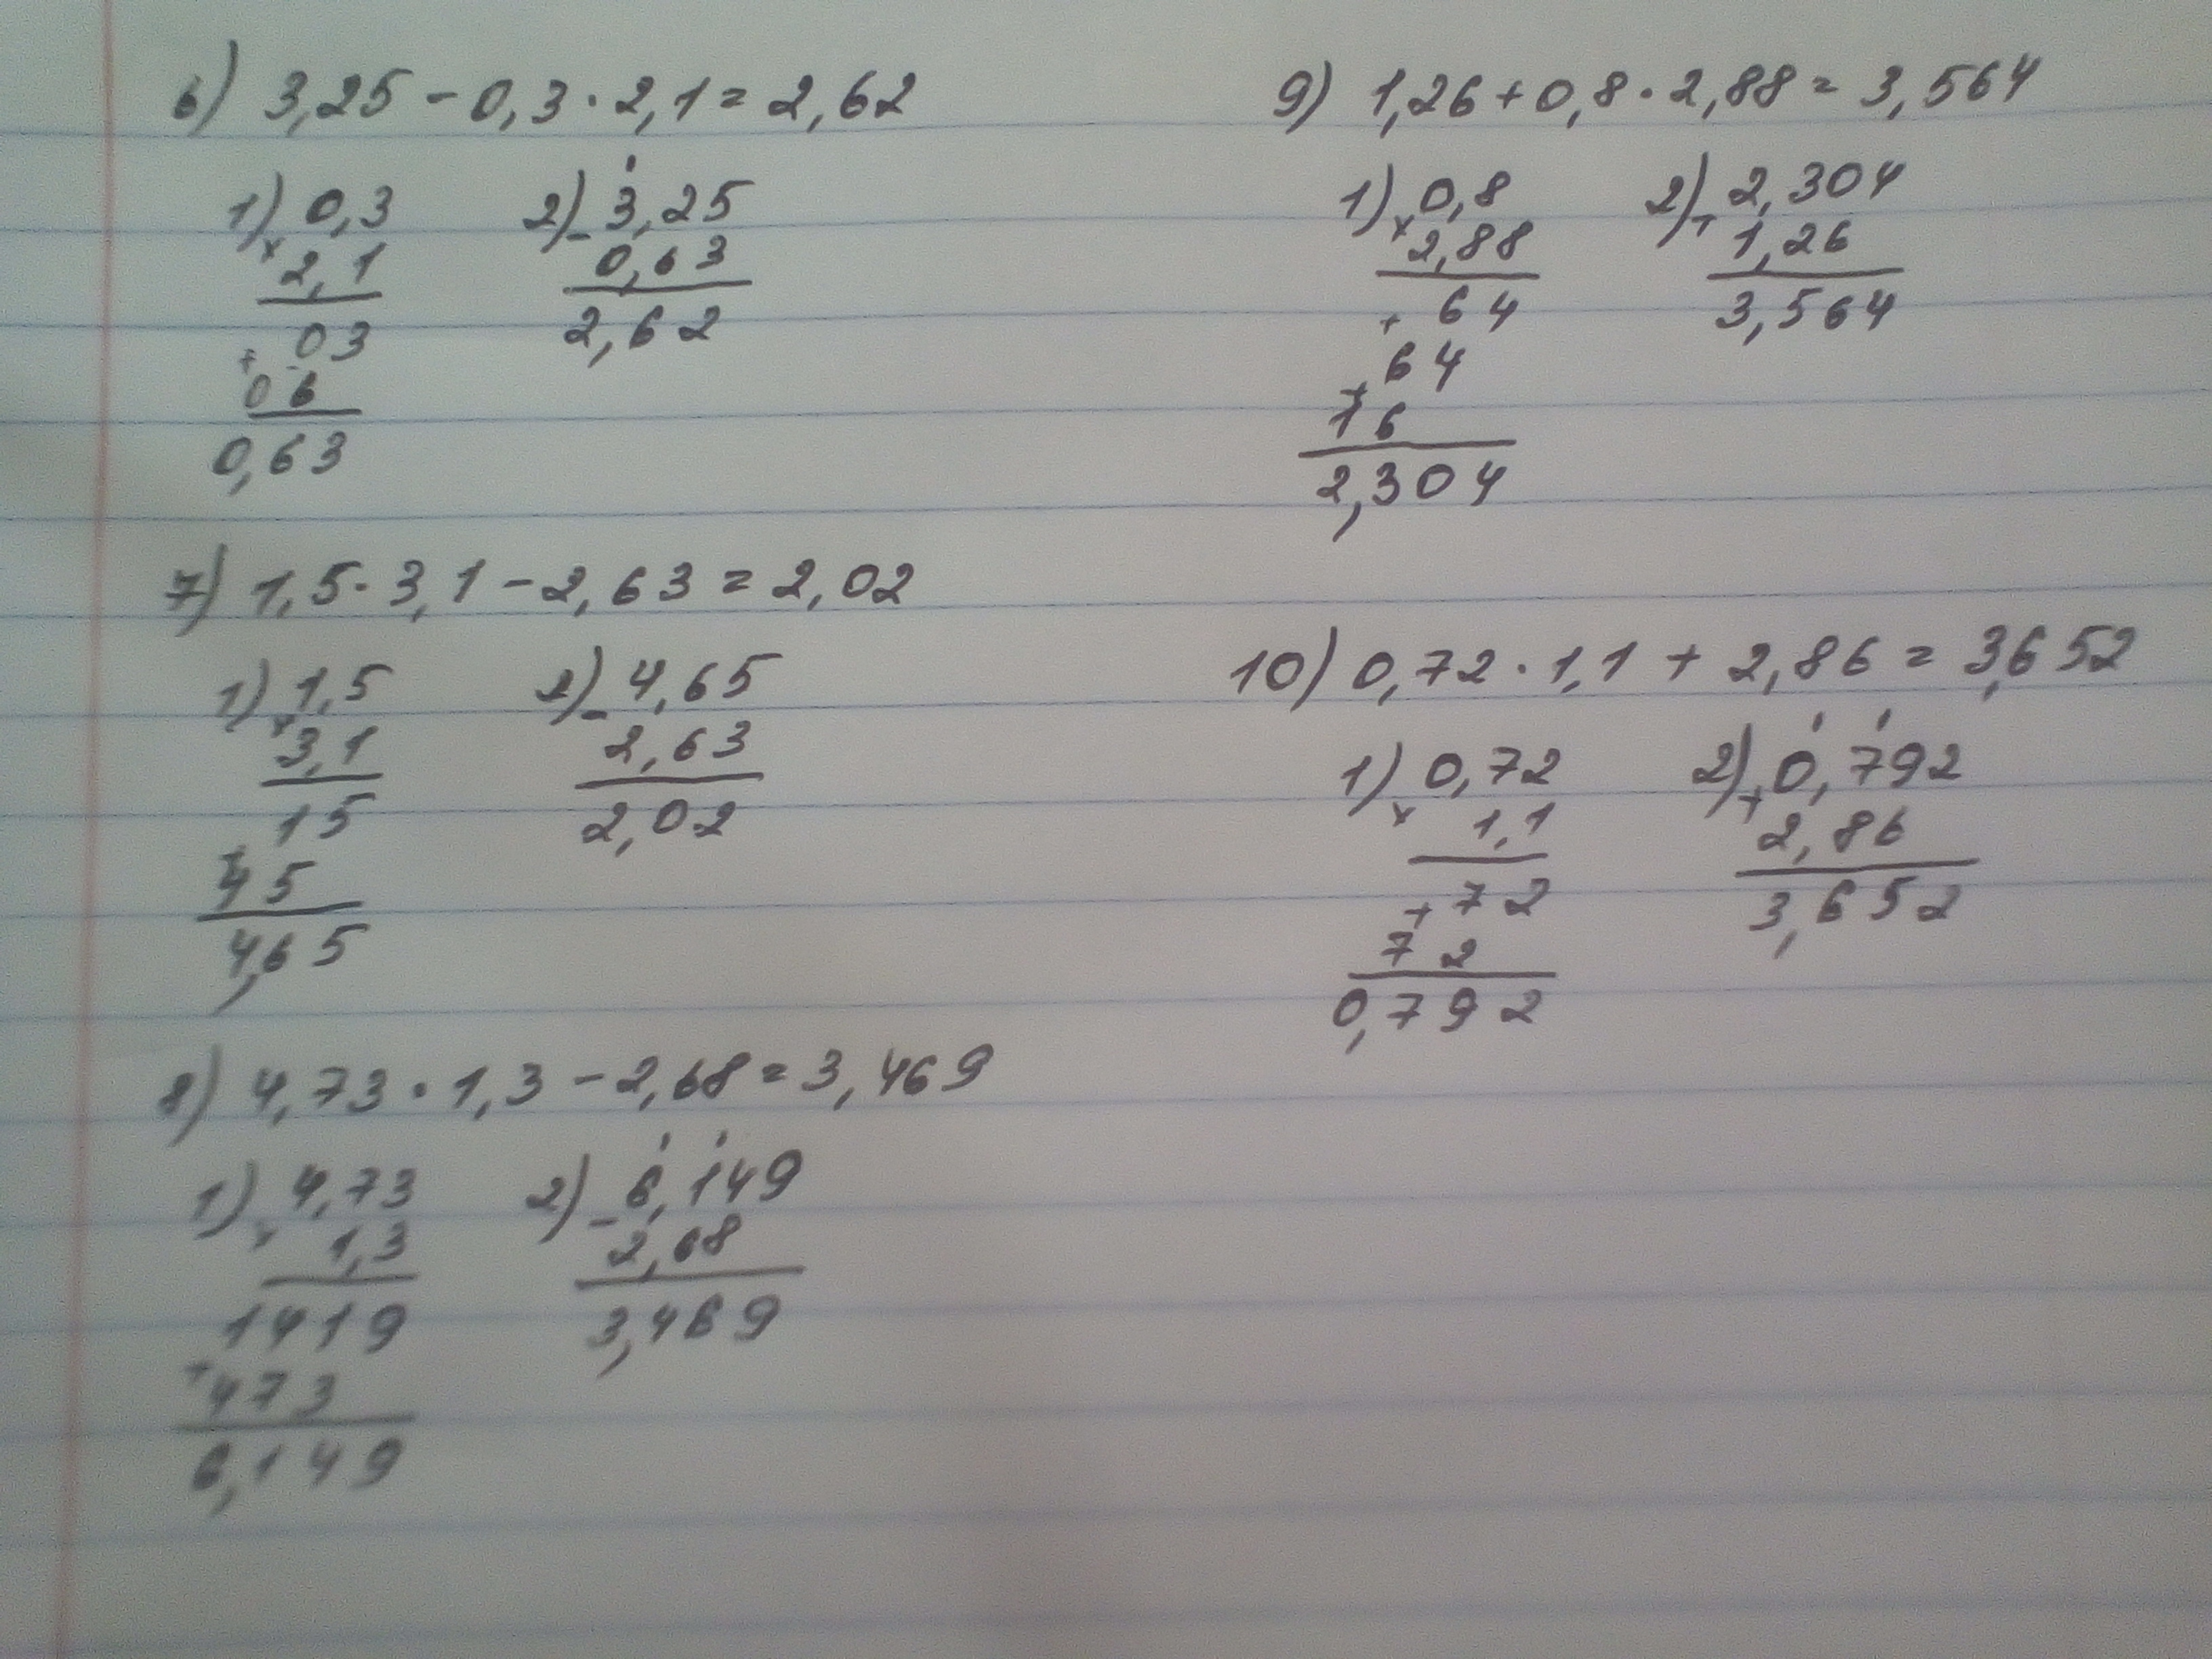 6) 3,25 - 0,3 · 2,1 = 2,62
1) 0,3
× 2,1
03
+
06
0,63
2) - 3,25
0,63
2,62
7) 1,5 · 3,1 - 2,63 = 2,02
1) 1,5
× 3,1
15
+
45
4,65
2) - 4,65
2,63
2,02
8) 4,73 · 1,3 - 2,68 = 3,469
1) 4,73
× 1,3
1419
+
473
6,149
2) - 6,149
2,68
3,469
9) 1,26 + 0,8 · 2,88 = 3,564
1) 0,8
× 2,88
+ 64
64
+
16
2,304
2) 2,304
+ 1,26
3,564
10) 0,72 · 1,1 + 2,86 = 3,652
1) 0,72
× 1,1
+ 72
72
0,792
2) 0,792
+ 2,86
3,652